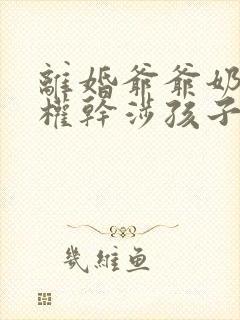 離婚爺爺奶
權幹涉孩子
幾維魚